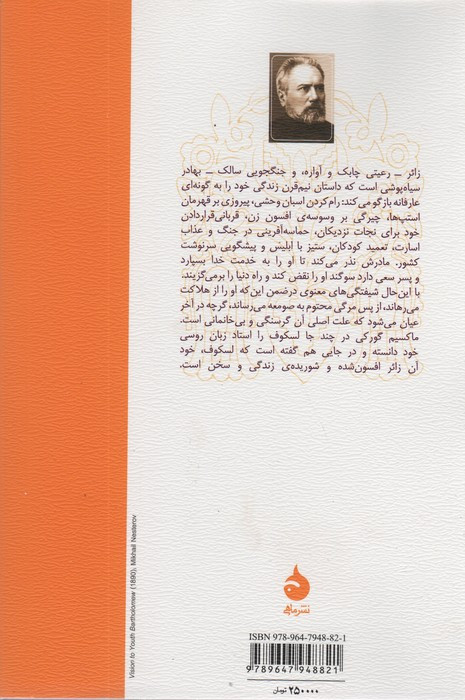 زائر ــ رعیتی چابک و آواره، و جنگجویی سالک ــ بهادر
سیاه‌پوشی است که داستان نیم‌قرن زندگی خود را به گونه‌ای
عارفانه بازگو می‌کند: رام‌کردن اسبان وحشی، پیروزی بر قهرمان
استپ‌ها، چیرگی بر وسوسه‌ی افسون زن، قربانی‌قراردادن
خود برای نجات نزدیکان، حماسه‌آفرینی در جنگ و عذاب
اسارت، تعمید کودکان، ستیز با ابلیس و پیشگویی سرنوشت
کشور. مادرش نذر می‌کند تا او را به خدمت خدا بسپارد
و پسر سعی دارد سوگند او را نقض کند و راه دنیا را برمی‌گزیند.
با این‌حال شیفتگی‌های معنوی درضمن این‌که او را از هلاکت
می‌رهاند، از پس مرگی محتوم به صومعه می‌رساند، گرچه در آخر
عیان می‌شود که علت اصلی آن گرسنگی و بی‌خانمانی است.
ماکسیم گورکی در چند جا لسکوف را استاد زبان روسی
خود دانسته و در جایی هم گفته است که لسکوف، خود
آن زائر افسون‌شده و شوریده‌ی زندگی و سخن است.
Vision to Youth Bartholomew (1890), Mikhail Nesterov
نشر ماهی
ISBN 978-964-7948-82-1
9 789647 948821
۲۵۰۰۰۰ تومان